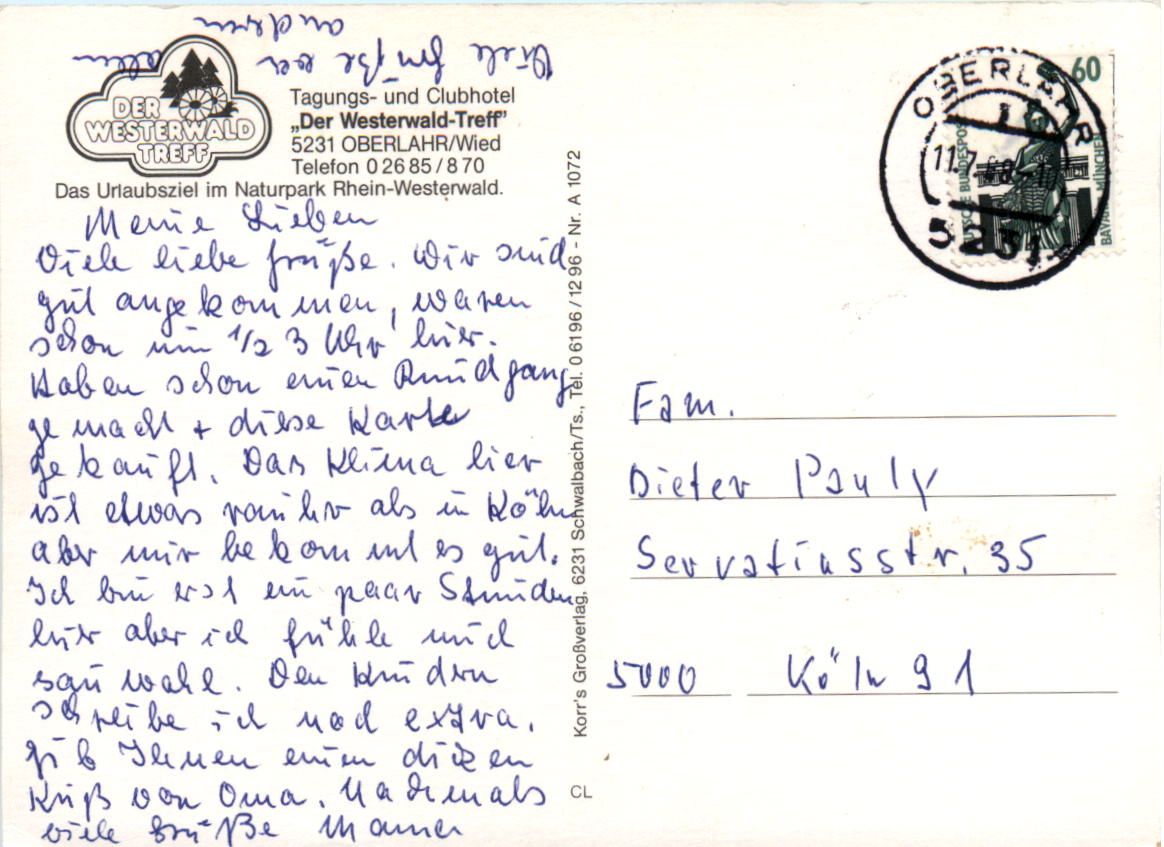 Viele Grüße von allen
anderen
DER
WESTERWALD
TREFF
Tagungs- und Clubhotel
„Der Westerwald-Treff"
5231 OBERLAHR/Wied
Telefon 0 26 85 / 8 70
Das Urlaubsziel im Naturpark Rhein-Westerwald.
Meine Lieben
Viele liebe Grüße. Wir sind
gut angekommen, waren
schon um 1/2 3 Uhr hier.
Haben schon einen Rundgang
gemacht + diese Karte
gekauft. Das Klima hier
ist etwas rauher als in Köln
aber mir bekommt es gut.
Ich bin erst ein paar Stunden
hier aber ich fühle mich
sau wohl. Den Kindern
schreibe ich noch extra.
Gib Ihnen einen dicken
Kuß von Oma. Nochmals
viele Grüße Mama
Korr's Großverlag, 6231 Schwalbach/Ts., Tel. 0 61 96 / 12 96 - Nr. A 1072
CL
60
DEUTSCHE BUNDESPOST
MÜNCHEN
OBERLAHR
5231
Fam.
Dieter Pauly
Servatiusstr. 35
5000 Köln 91